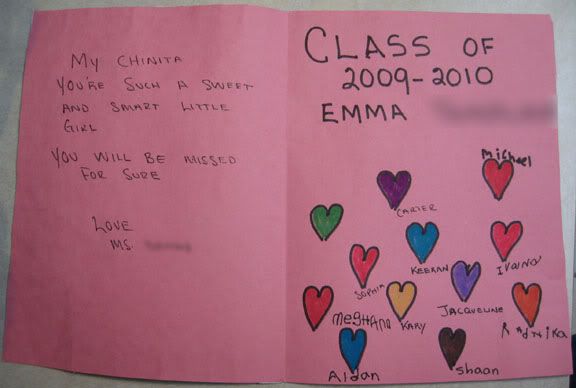 My CHINITA
YOU'RE SUCH A SWEET
AND SMART LITTLE
GIRL
YOU WILL BE MISSED
FOR SURE
LOVE
MS.
CLASS OF
2009-2010
EMMA
michael
CARTER
KEERAN
IVANA
SOPHIA
JACQUELINE
MEGHANA
KARY
RADHIKA
Aidan
shaan